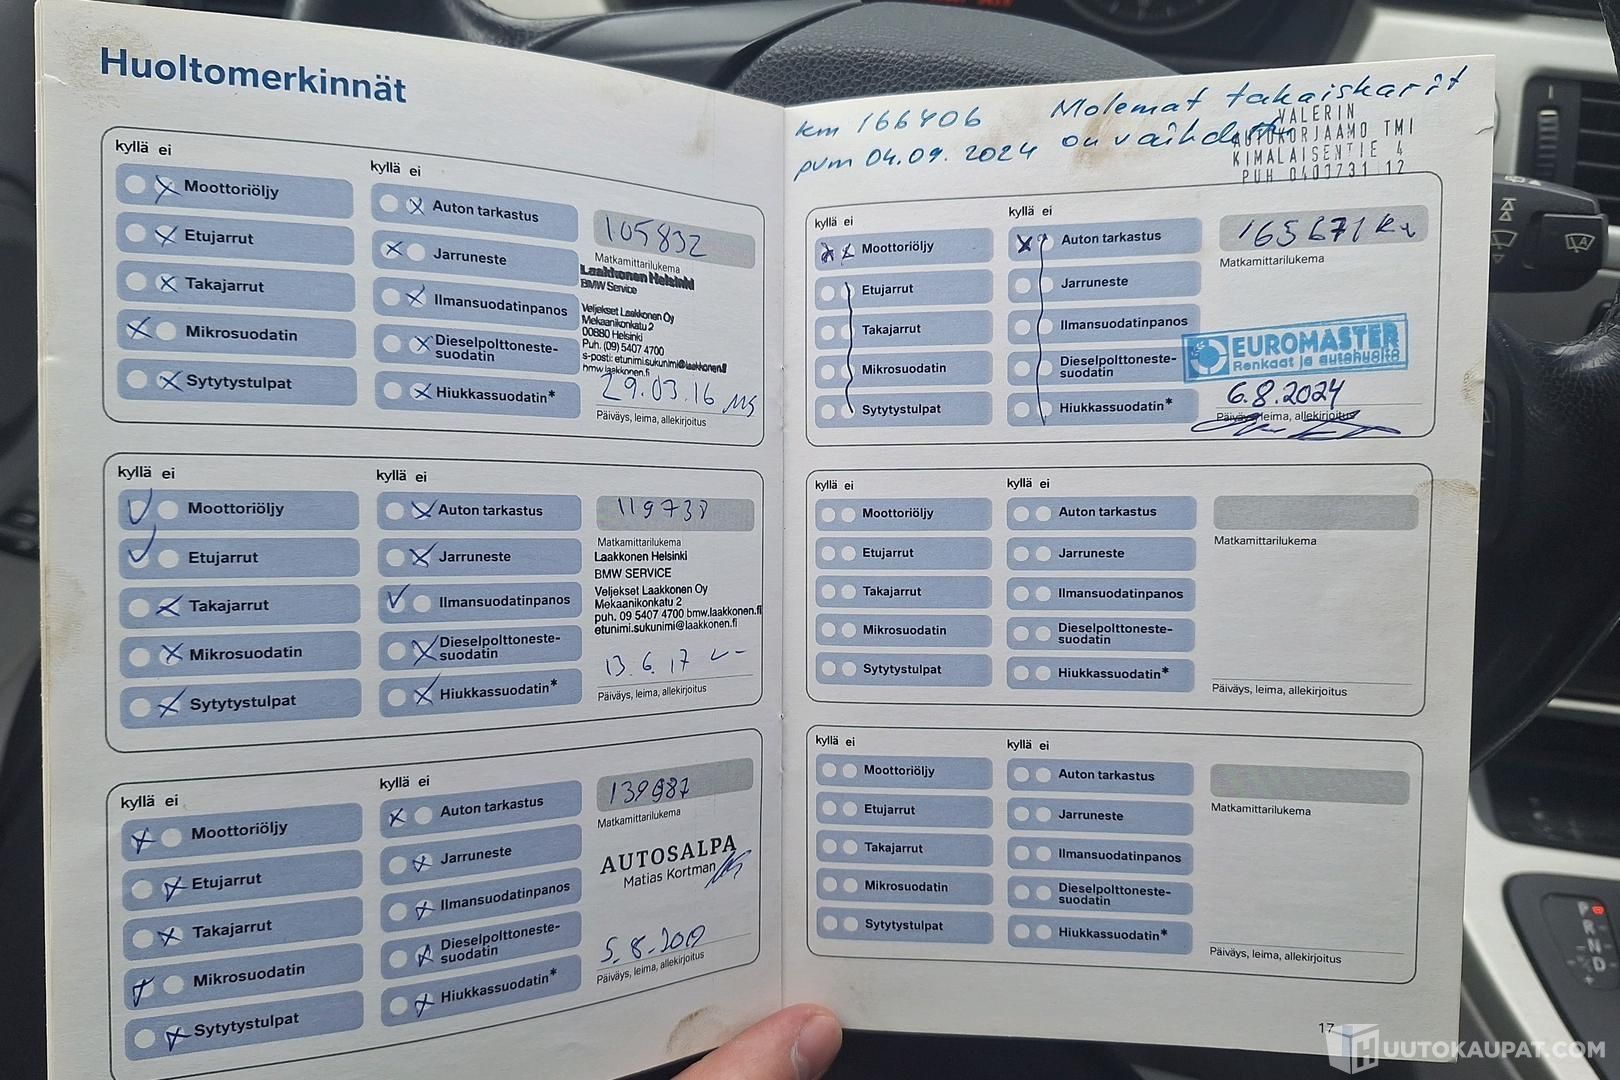 Huoltomerkinnät
kyllä ei
Moottoriöljy
Etujarrut
Takajarrut
Mikrosuodatin
Sytytystulpat
kyllä ei
Auton tarkastus
Jarruneste
Ilmansuodatinpanos
Dieselpolttoneste-
suodatin
Hiukkassuodatin*
105832
Matkamittarilukema
Laakkonen Helsinki
BMW Service
Veljekset Laakkonen Oy
Mekaanikonkatu 2
00880 Helsinki
Puh. (09) 5407 4700
s-posti: etunimi.sukunimi@laakkonen.fi
bmw.laakkonen.fi
29.03.16
Päiväys, leima, allekirjoitus
kyllä ei
Moottoriöljy
Etujarrut
Takajarrut
Mikrosuodatin
Sytytystulpat
kyllä ei
Auton tarkastus
Jarruneste
Ilmansuodatinpanos
Dieselpolttoneste-
suodatin
Hiukkassuodatin*
119738
Matkamittarilukema
Laakkonen Helsinki
BMW SERVICE
Veljekset Laakkonen Oy
Mekaanikonkatu 2
puh. 09 5407 4700 bmw.laakkonen.fi
etunimi.sukunimi@laakkonen.fi
13.6.17
Päiväys, leima, allekirjoitus
kyllä ei
Moottoriöljy
Etujarrut
Takajarrut
Mikrosuodatin
Sytytystulpat
kyllä ei
Auton tarkastus
Jarruneste
Ilmansuodatinpanos
Dieselpolttoneste-
suodatin
Hiukkassuodatin*
139987
Matkamittarilukema
AUTOSALPA
Matias Kortman
5.8.2019
Päiväys, leima, allekirjoitus
km 166406 Molemat takaiskarit
pvm 04.09.2024 on vaihdettu
VALERIN
AUTOKORJAAMO TMI
KIMALAISENTIE 4
PUH
kyllä ei
Moottoriöljy
Etujarrut
Takajarrut
Mikrosuodatin
Sytytystulpat
kyllä ei
Auton tarkastus
Jarruneste
Ilmansuodatinpanos
Dieselpolttoneste-
suodatin
Hiukkassuodatin*
165671 km
Matkamittarilukema
EUROMASTER
Renkaat ja autohuolto
6.8.2024
Päiväys, leima, allekirjoitus
kyllä ei
Moottoriöljy
Etujarrut
Takajarrut
Mikrosuodatin
Sytytystulpat
kyllä ei
Auton tarkastus
Jarruneste
Ilmansuodatinpanos
Dieselpolttoneste-
suodatin
Hiukkassuodatin*
Matkamittarilukema
Päiväys, leima, allekirjoitus
kyllä ei
Moottoriöljy
Etujarrut
Takajarrut
Mikrosuodatin
Sytytystulpat
kyllä ei
Auton tarkastus
Jarruneste
Ilmansuodatinpanos
Dieselpolttoneste-
suodatin
Hiukkassuodatin*
Matkamittarilukema
Päiväys, leima, allekirjoitus
17
P
R
N
D
UUTOKAUPAT.COM